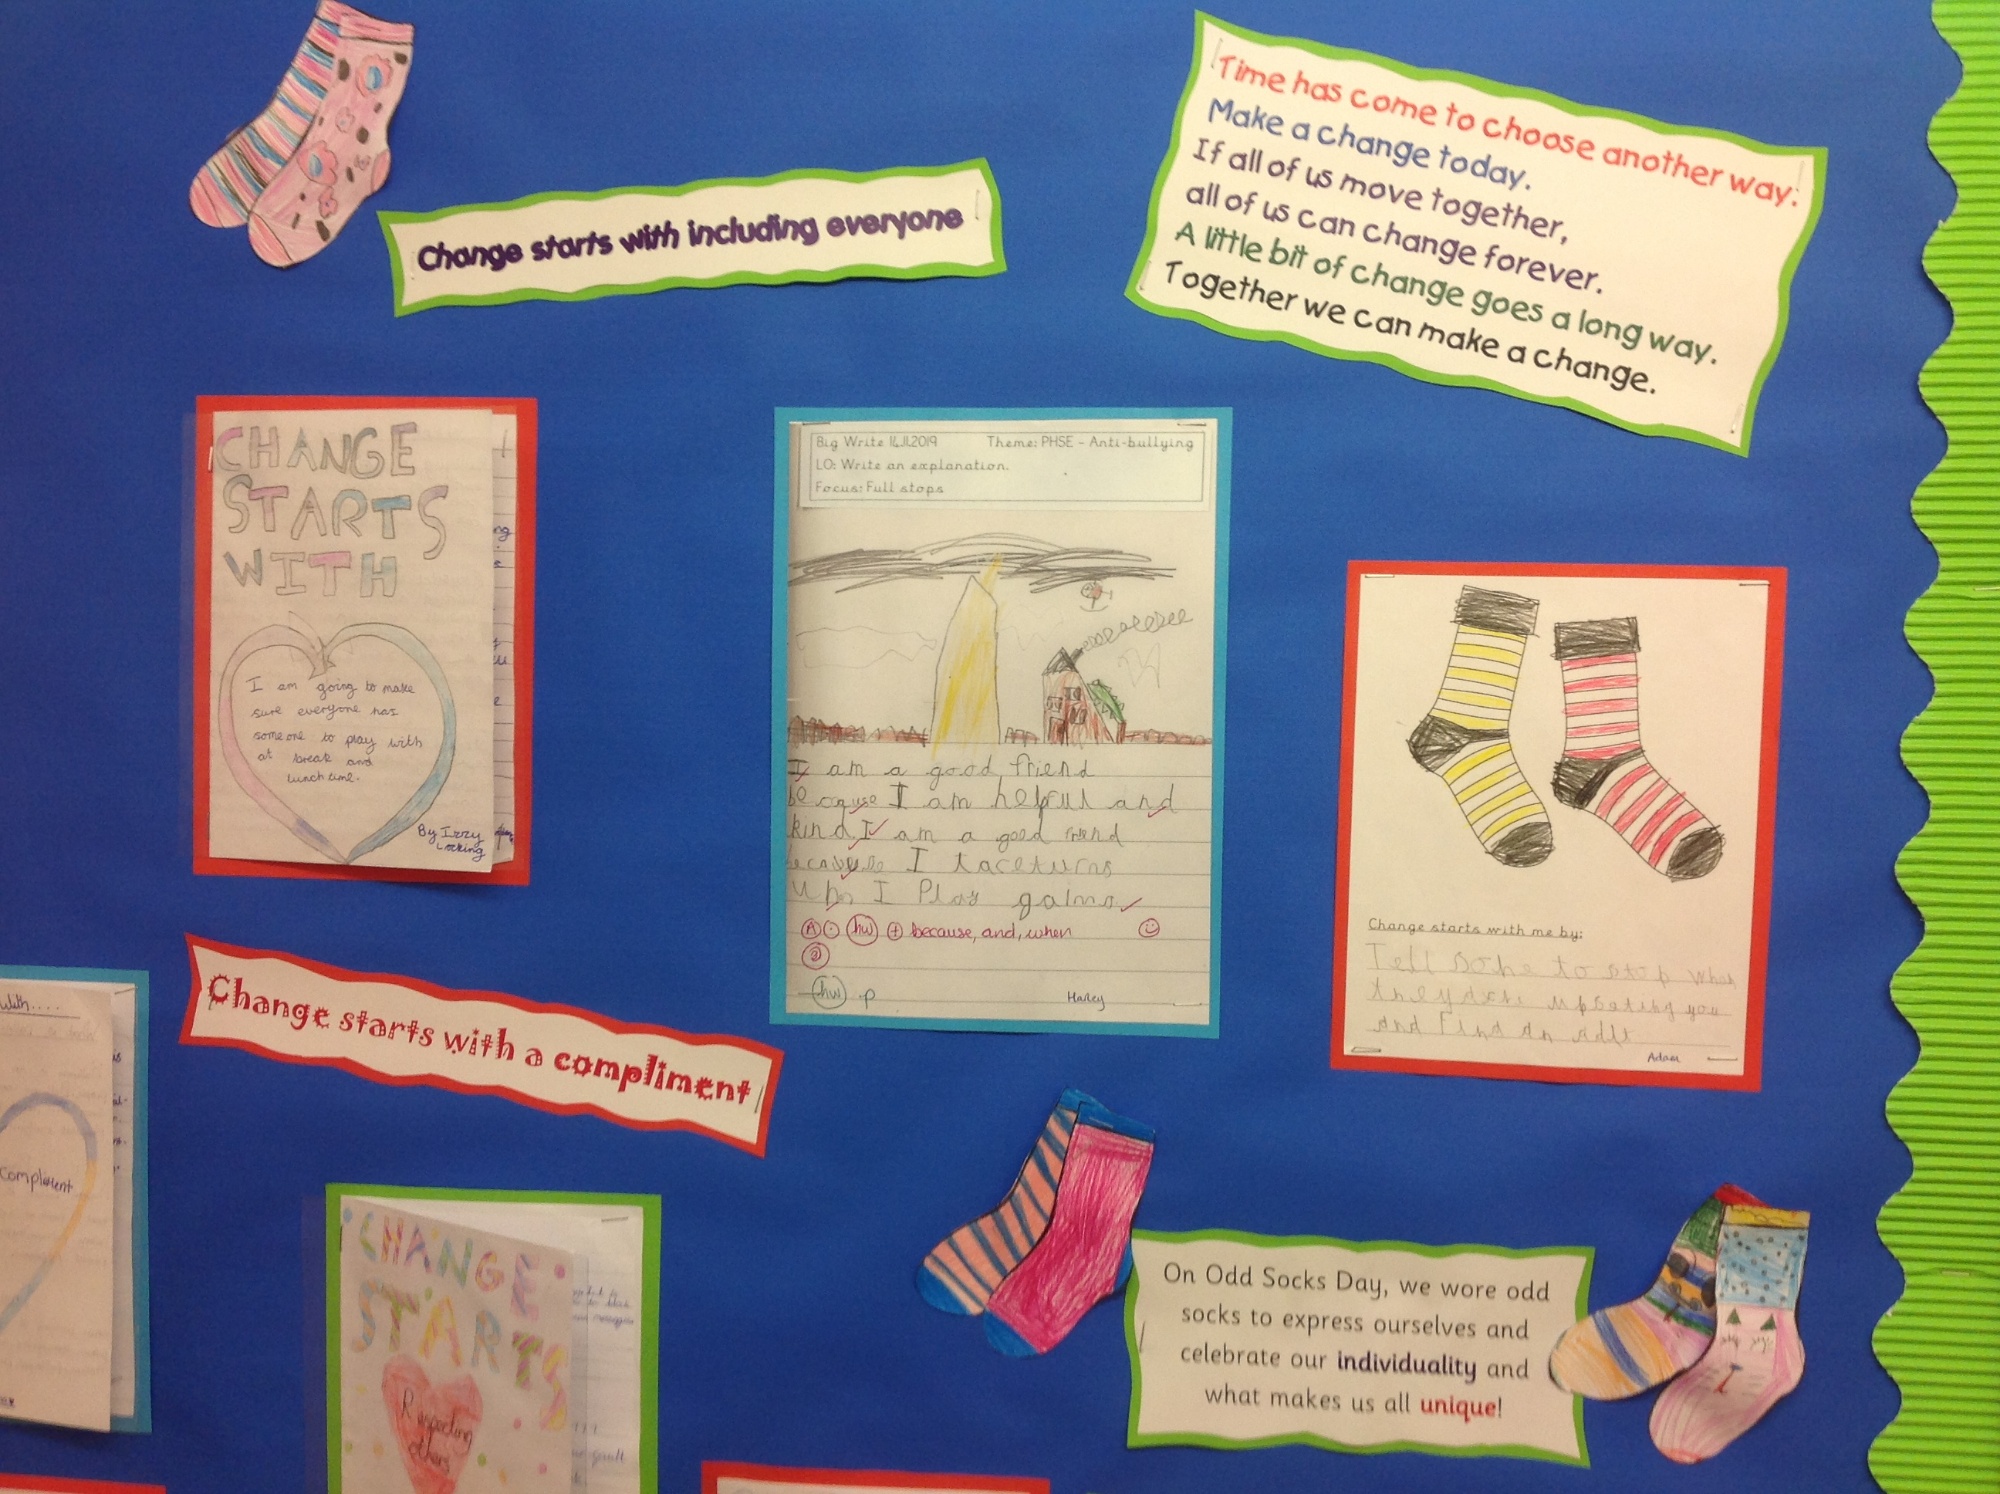 Change starts with including everyone
Time has come to choose another way:
Make a change today.
If all of us move together,
all of us can change forever.
A little bit of change goes a long way.
Together we can make a change.
CHANGE
STARTS
WITH
I am going to make
sure everyone has
someone to play with
at break and
lunch time.
By Izzy
Locking
Big Write 14.11.2019 Theme: PHSE - Anti-bullying
LO: Write an explanation.
Focus: Full stops
I am a good friend
because I am helpful and
kind. I am a good friend
I taceturns
I Play
hw because, and, when
hw p
Harley
Change starts with me by:
Tell to stop when
they upseting you
and find an
Adam
Change starts with a compliment
with....
Compliment
CHANGE
STARTS
Respecting
others
On Odd Socks Day, we wore odd
socks to express ourselves and
celebrate our individuality and
what makes us all unique!